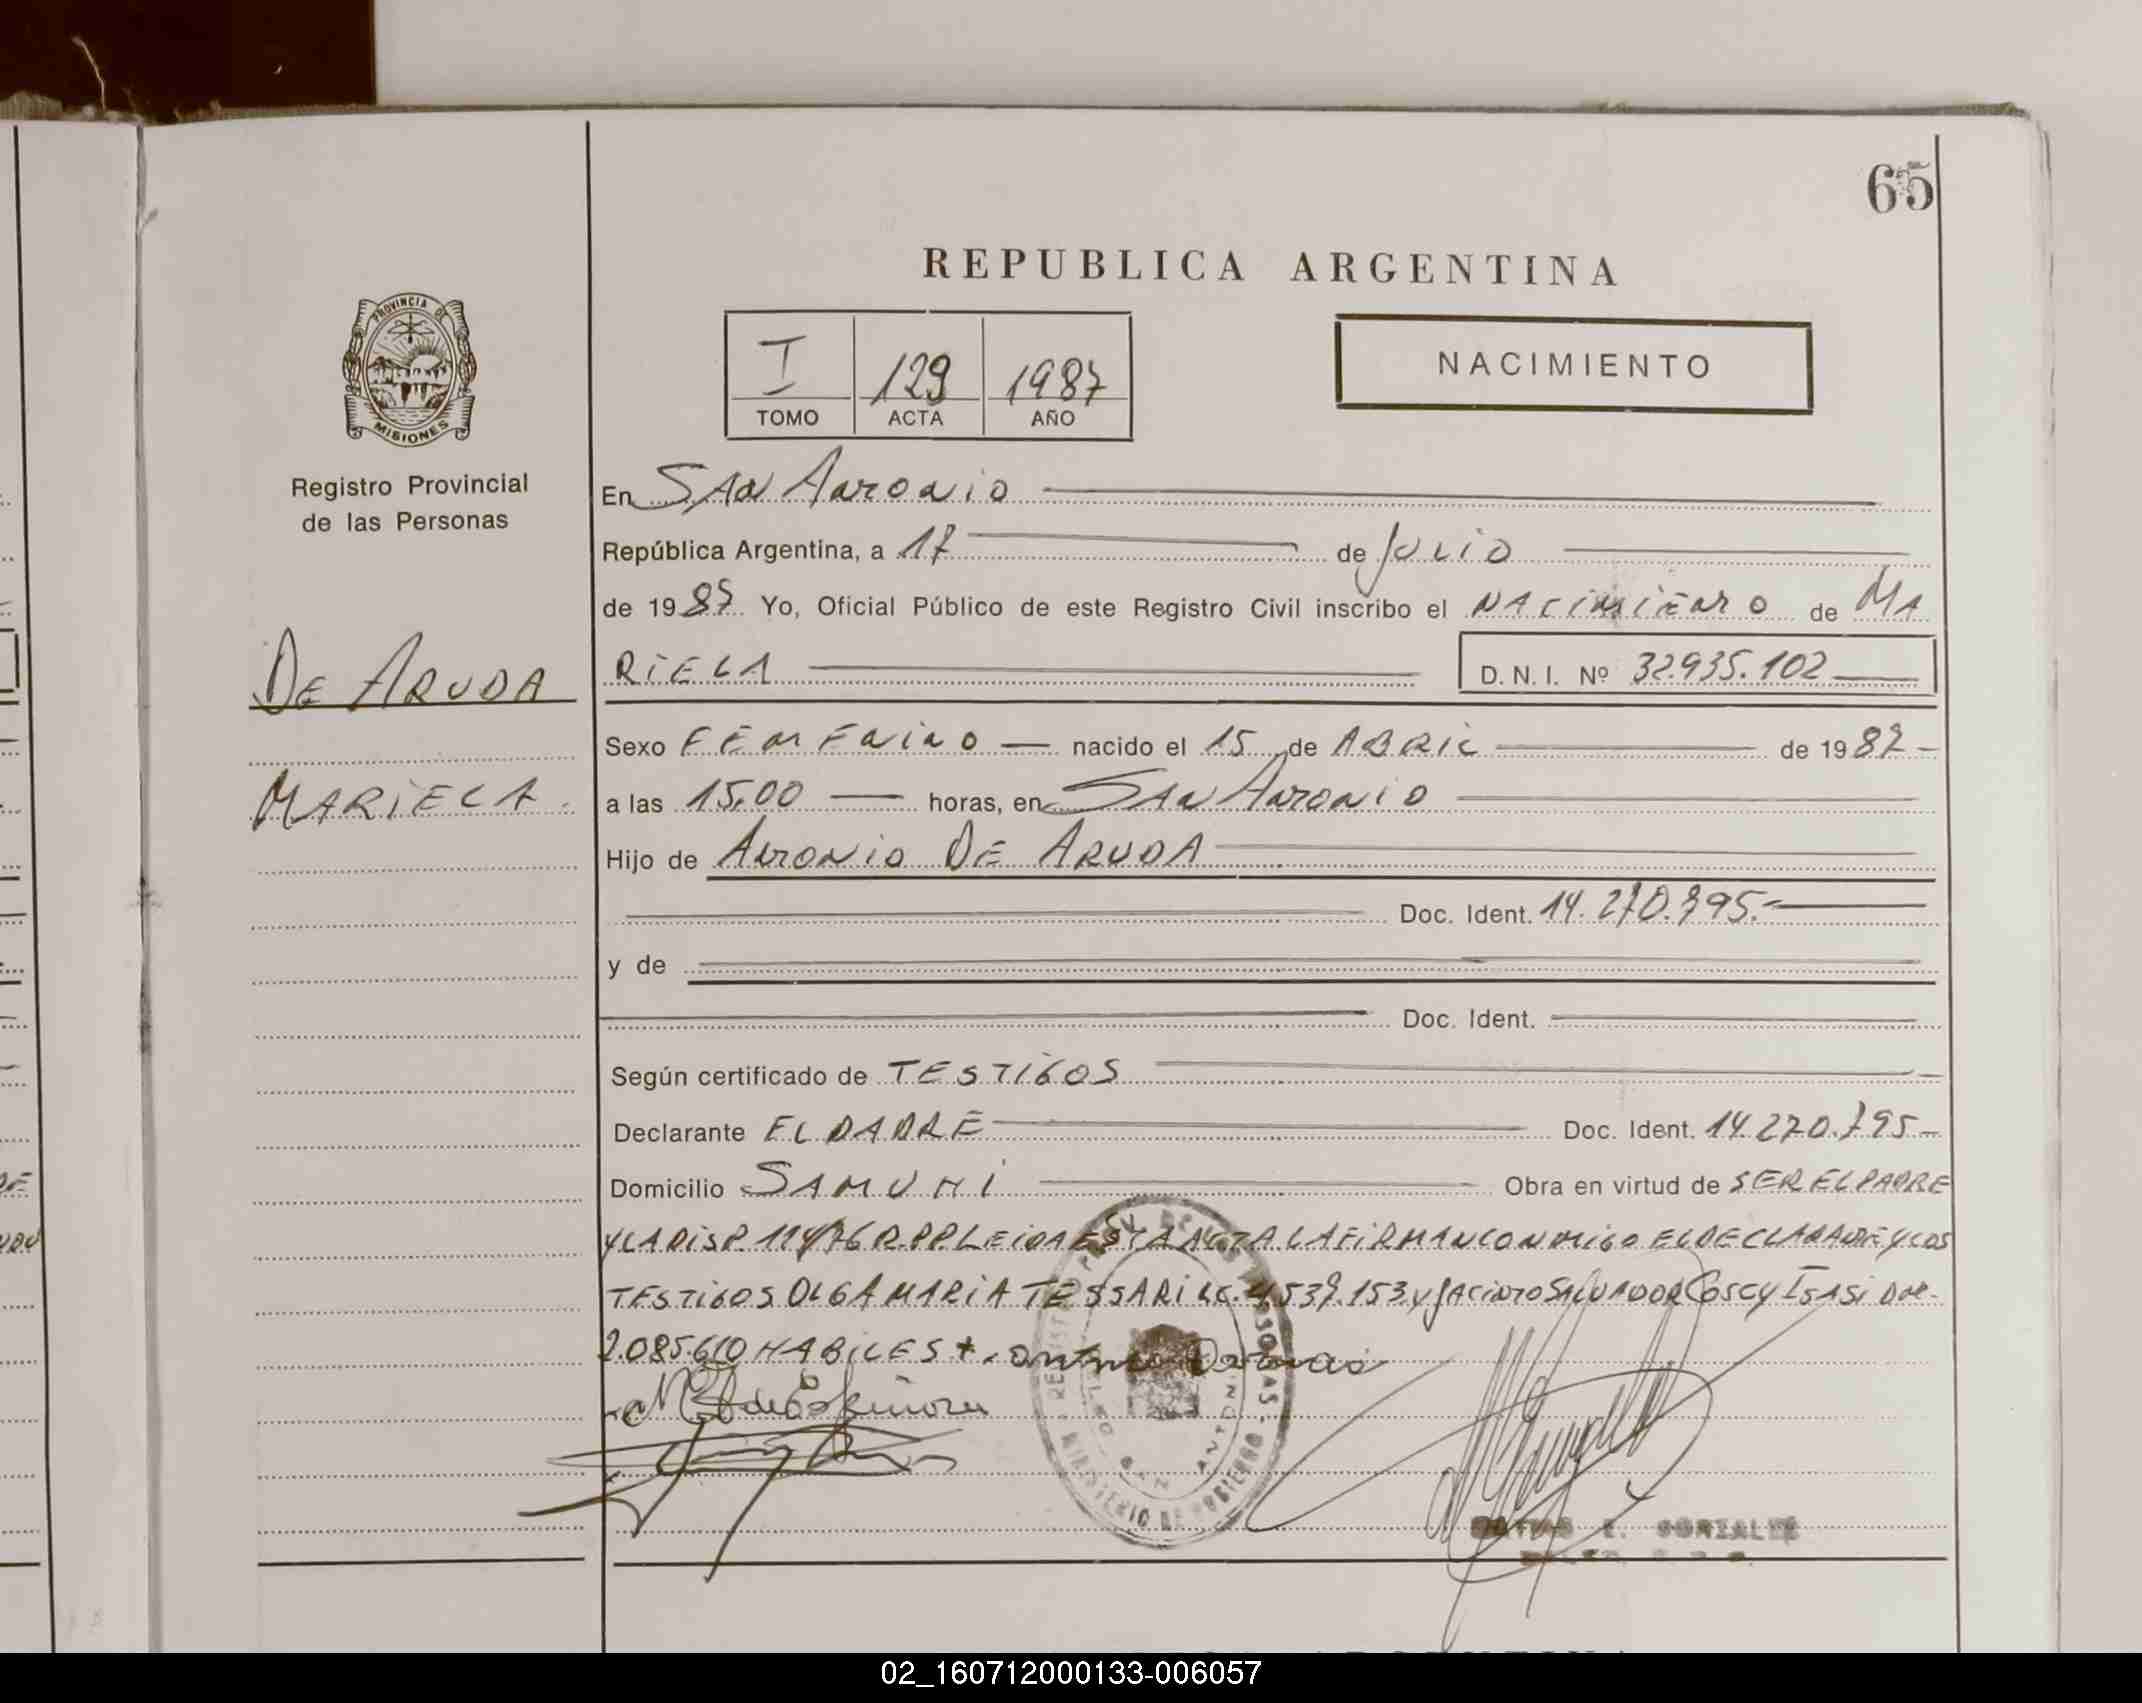 65
REPUBLICA ARGENTINA
I 129 1987
TOMO ACTA AÑO
NACIMIENTO
PROVINCIA DE
MISIONES
Registro Provincial
de las Personas
De Aruda
Mariela
En San Antonio
República Argentina, a 17 de Julio
de 1987 Yo, Oficial Público de este Registro Civil inscribo el Nacimiento de Ma
riela D. N. I. Nº 32.935.102
Sexo Femenino nacido el 15 de Abril de 1987
a las 15.00 horas, en San Antonio
Hijo de Antonio De Aruda
Doc. Ident. 14.270.795.-
y de
Doc. Ident.
Según certificado de Testigos
Declarante El Padre Doc. Ident. 14.270.795-
Domicilio Samuhi Obra en virtud de ser el padre
y la Disp. 114/76 R.P.P. Leida esta acta la firman conmigo el declarante y los
testigos Olga Maria Tessari L.C. 4.537.153 y Jacinto Salvador Coscy Isasi
2.085.610 habiles
02_160712000133-006057